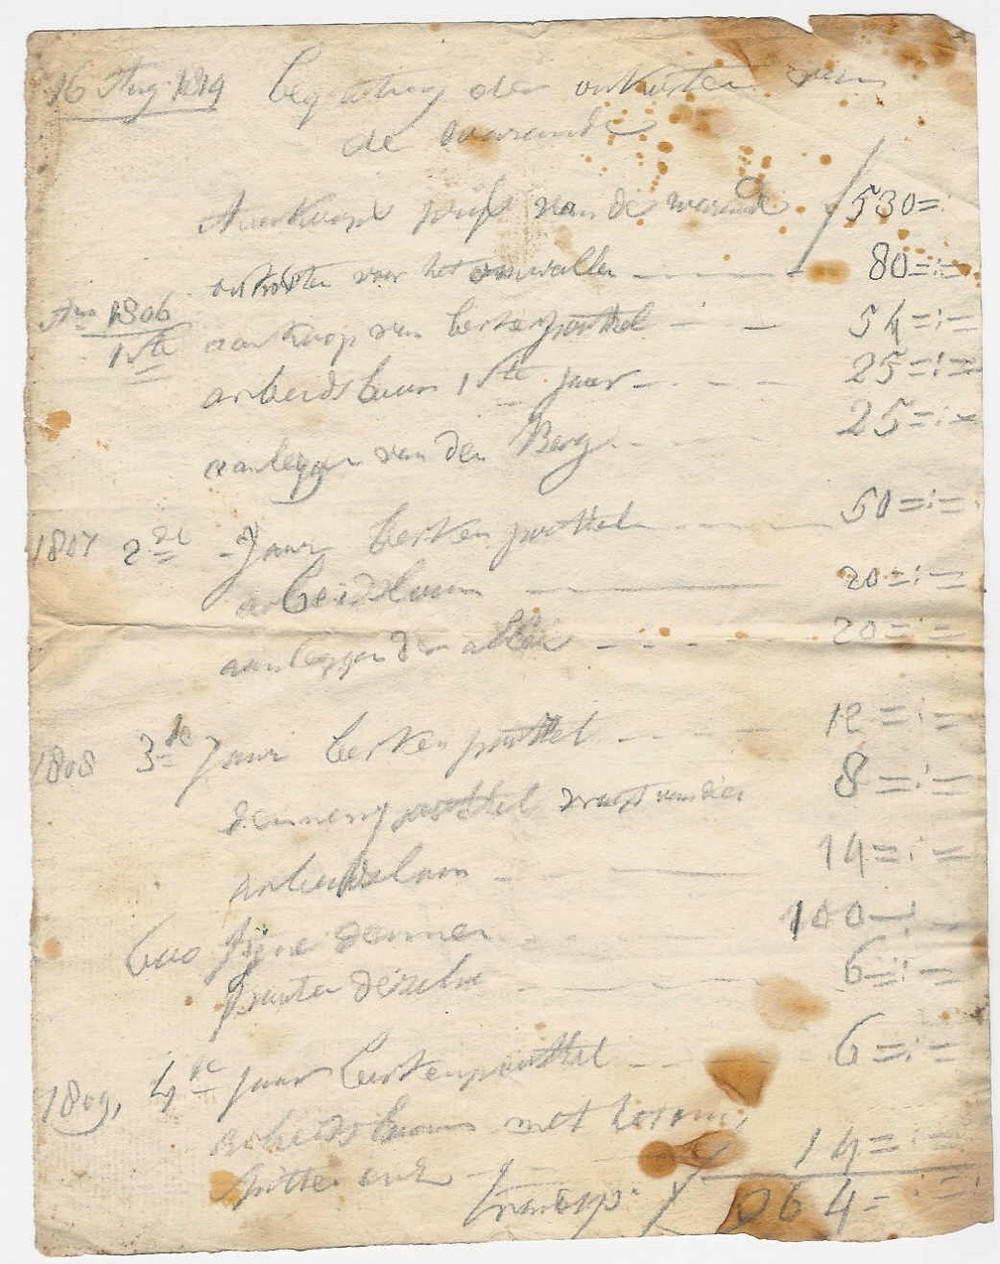 16 Aug. 1819 begroting der onkosten van
de warande
Aankoops prijs van de warande f 530=:
onkosten voor het omwallen — 80=:=
Ano 1806 aankoop van berkenpoothel — 54=:=
1ste arbeidsloon 1ste jaar — 25=:=
aanleggen van den Berg — 25=:=
1807 2de Jaar berkenpoothel — 50=:=
arbeidsloon — 20=:=
aanleggen der allee — 20=:=
1808 3de Jaar berkenpoothel — 12=:=
dennenpoothel — 8=:=
arbeidsloon — 14=:=
600 fijne dennen — 100=:—
planten dezelve — 6=:=
1809, 4de jaar berkenpoothel — 6=:=
arbeidsloon met het om
spitten enz — 14=:=
Transp: f 964=:=